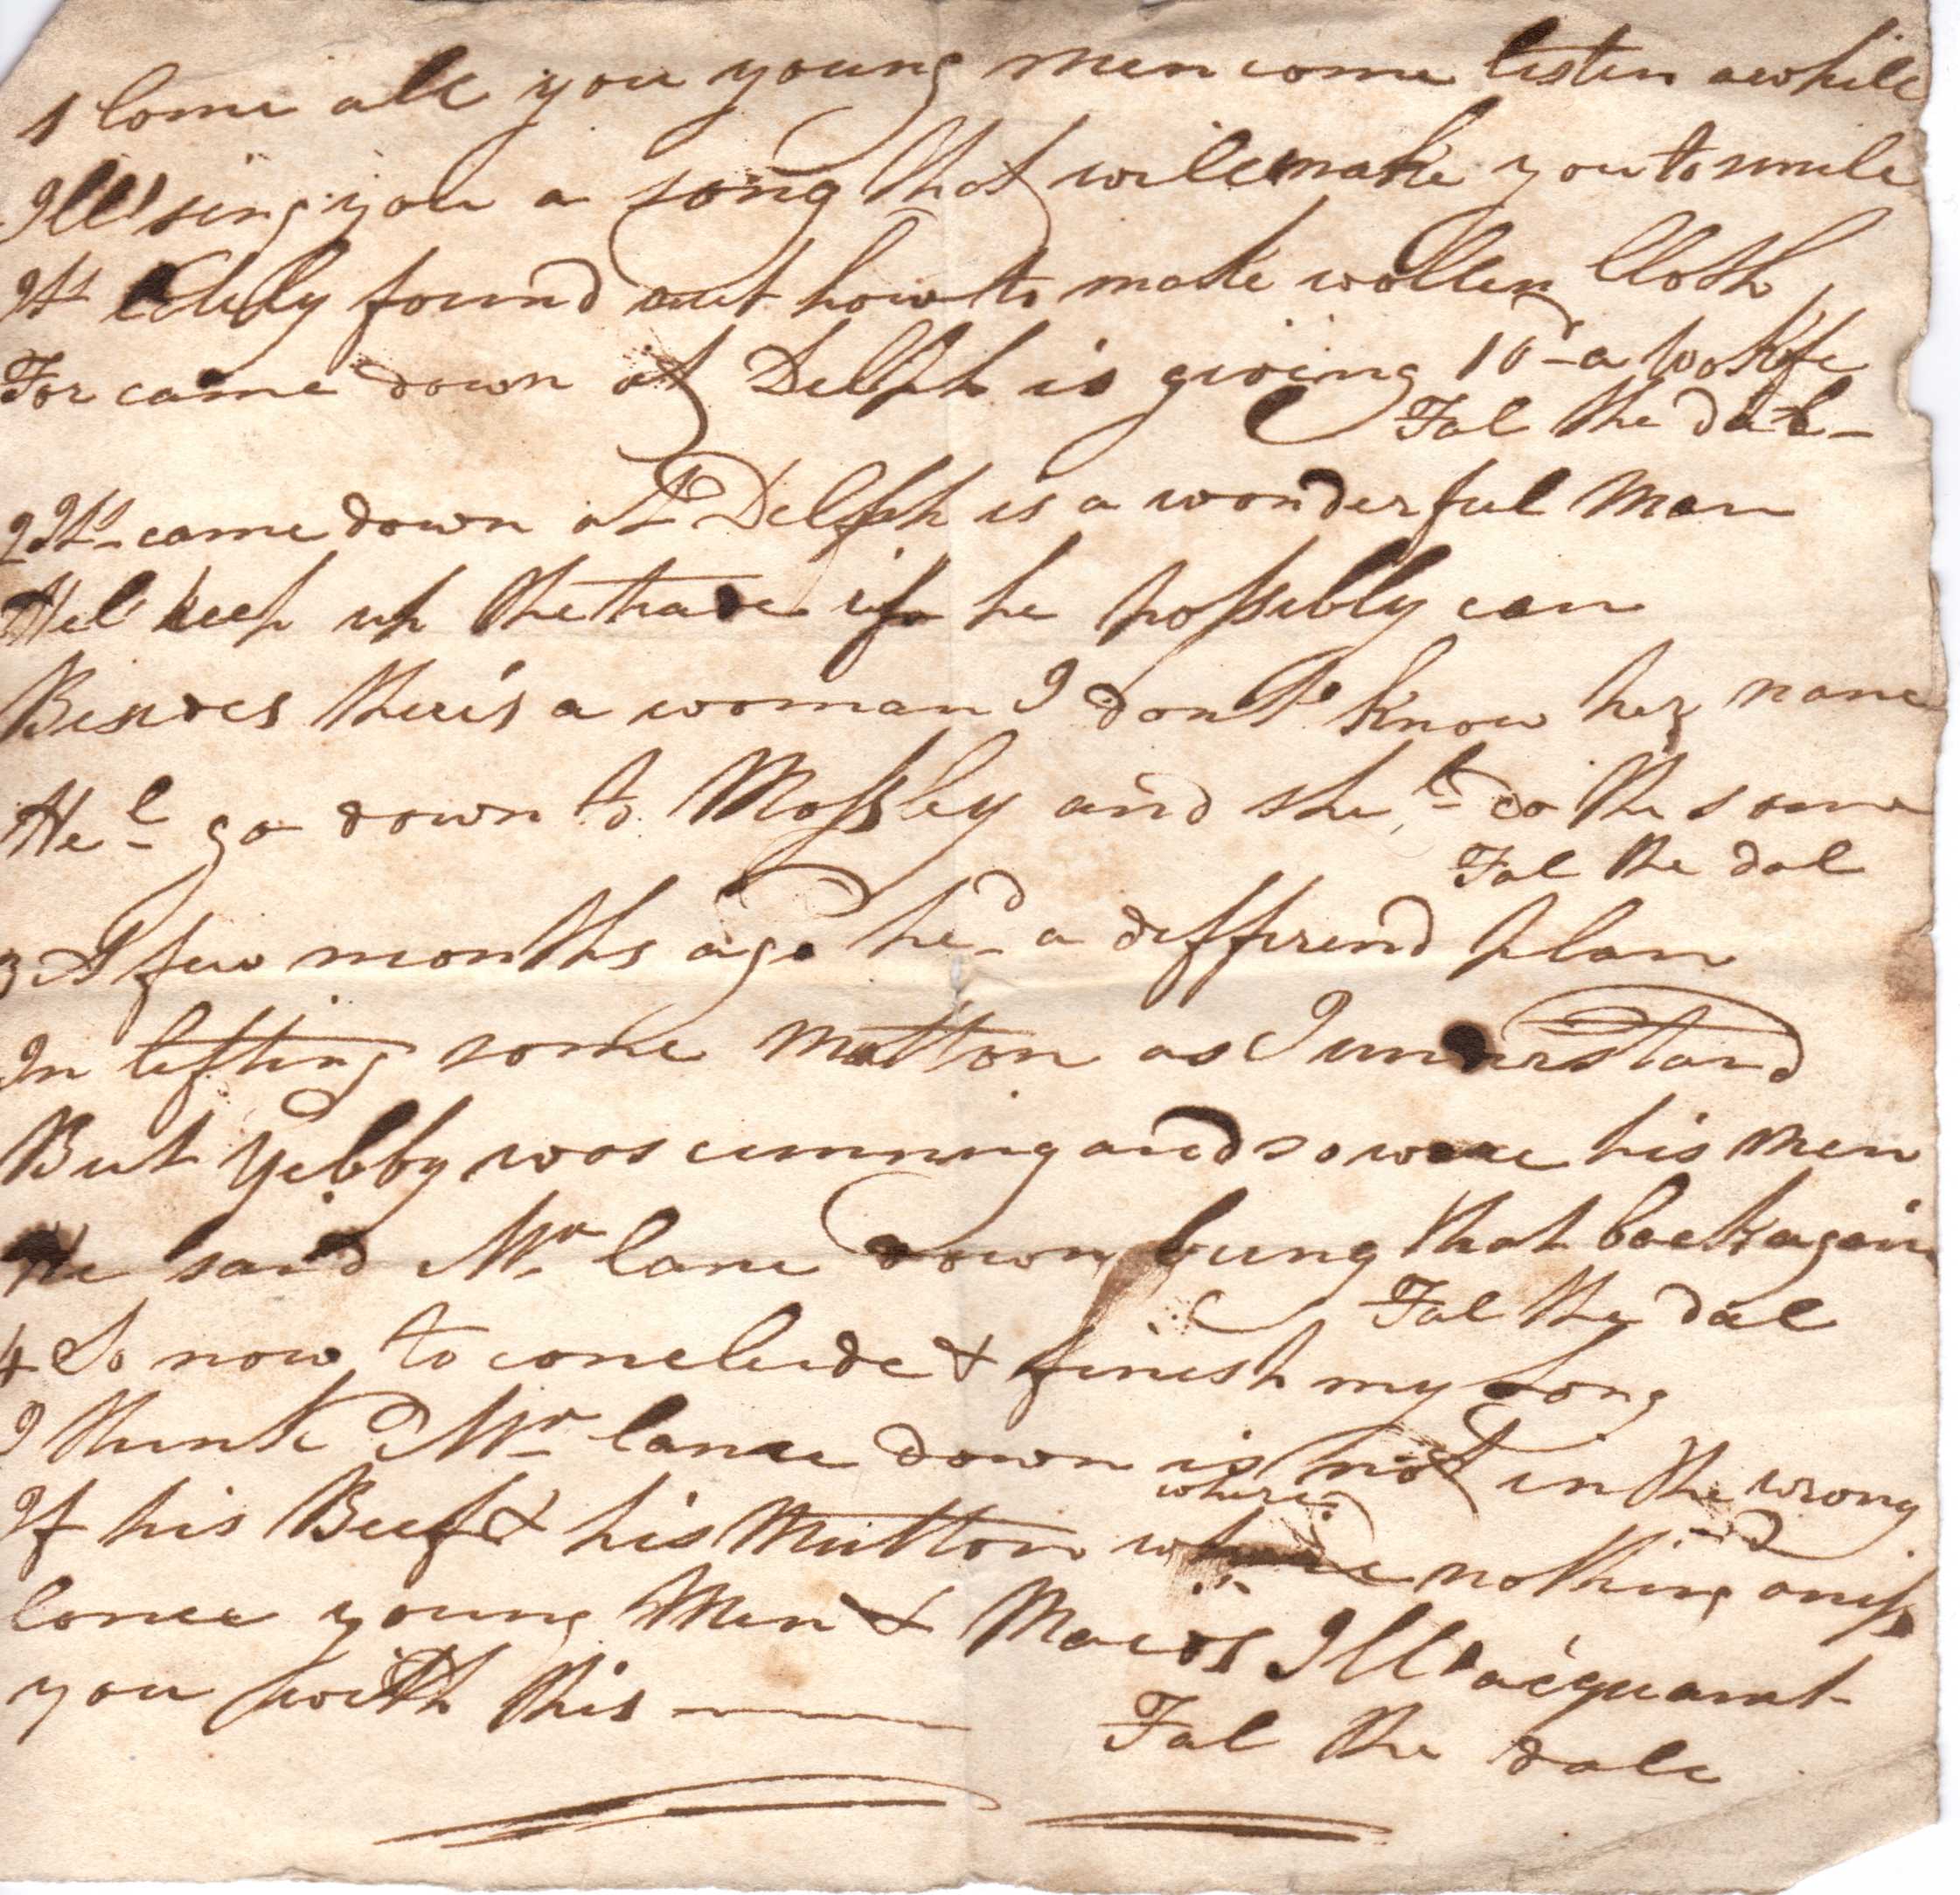 1 Come all you young men come listen awhile
Ill' sing you a song that will make you to smile
Its found out how to make wollen Cloth
For came down at Delph is giving 10d a
Fal the dal
2 Its came down at Delph is a wonderful Man
Hel' keep up the trade if he possibly can
Besides theris a woman I dont know her name
He'l go down to Mossley and she'l do the same
Fal the dal
3 A few months ago he'd a diffirend plan
In lifting some Mutton as I understand
But Yebby was cunning and so were his Men
He said Mr lane down bung that back again
Fal the dal
4 So now to conclude & finish my song
I think Mr lane down is not in the wrong
If his Beef & his Mutton where nothing amiss
Come young Men & Maids Ill' acquant
you with this
Fal the dale